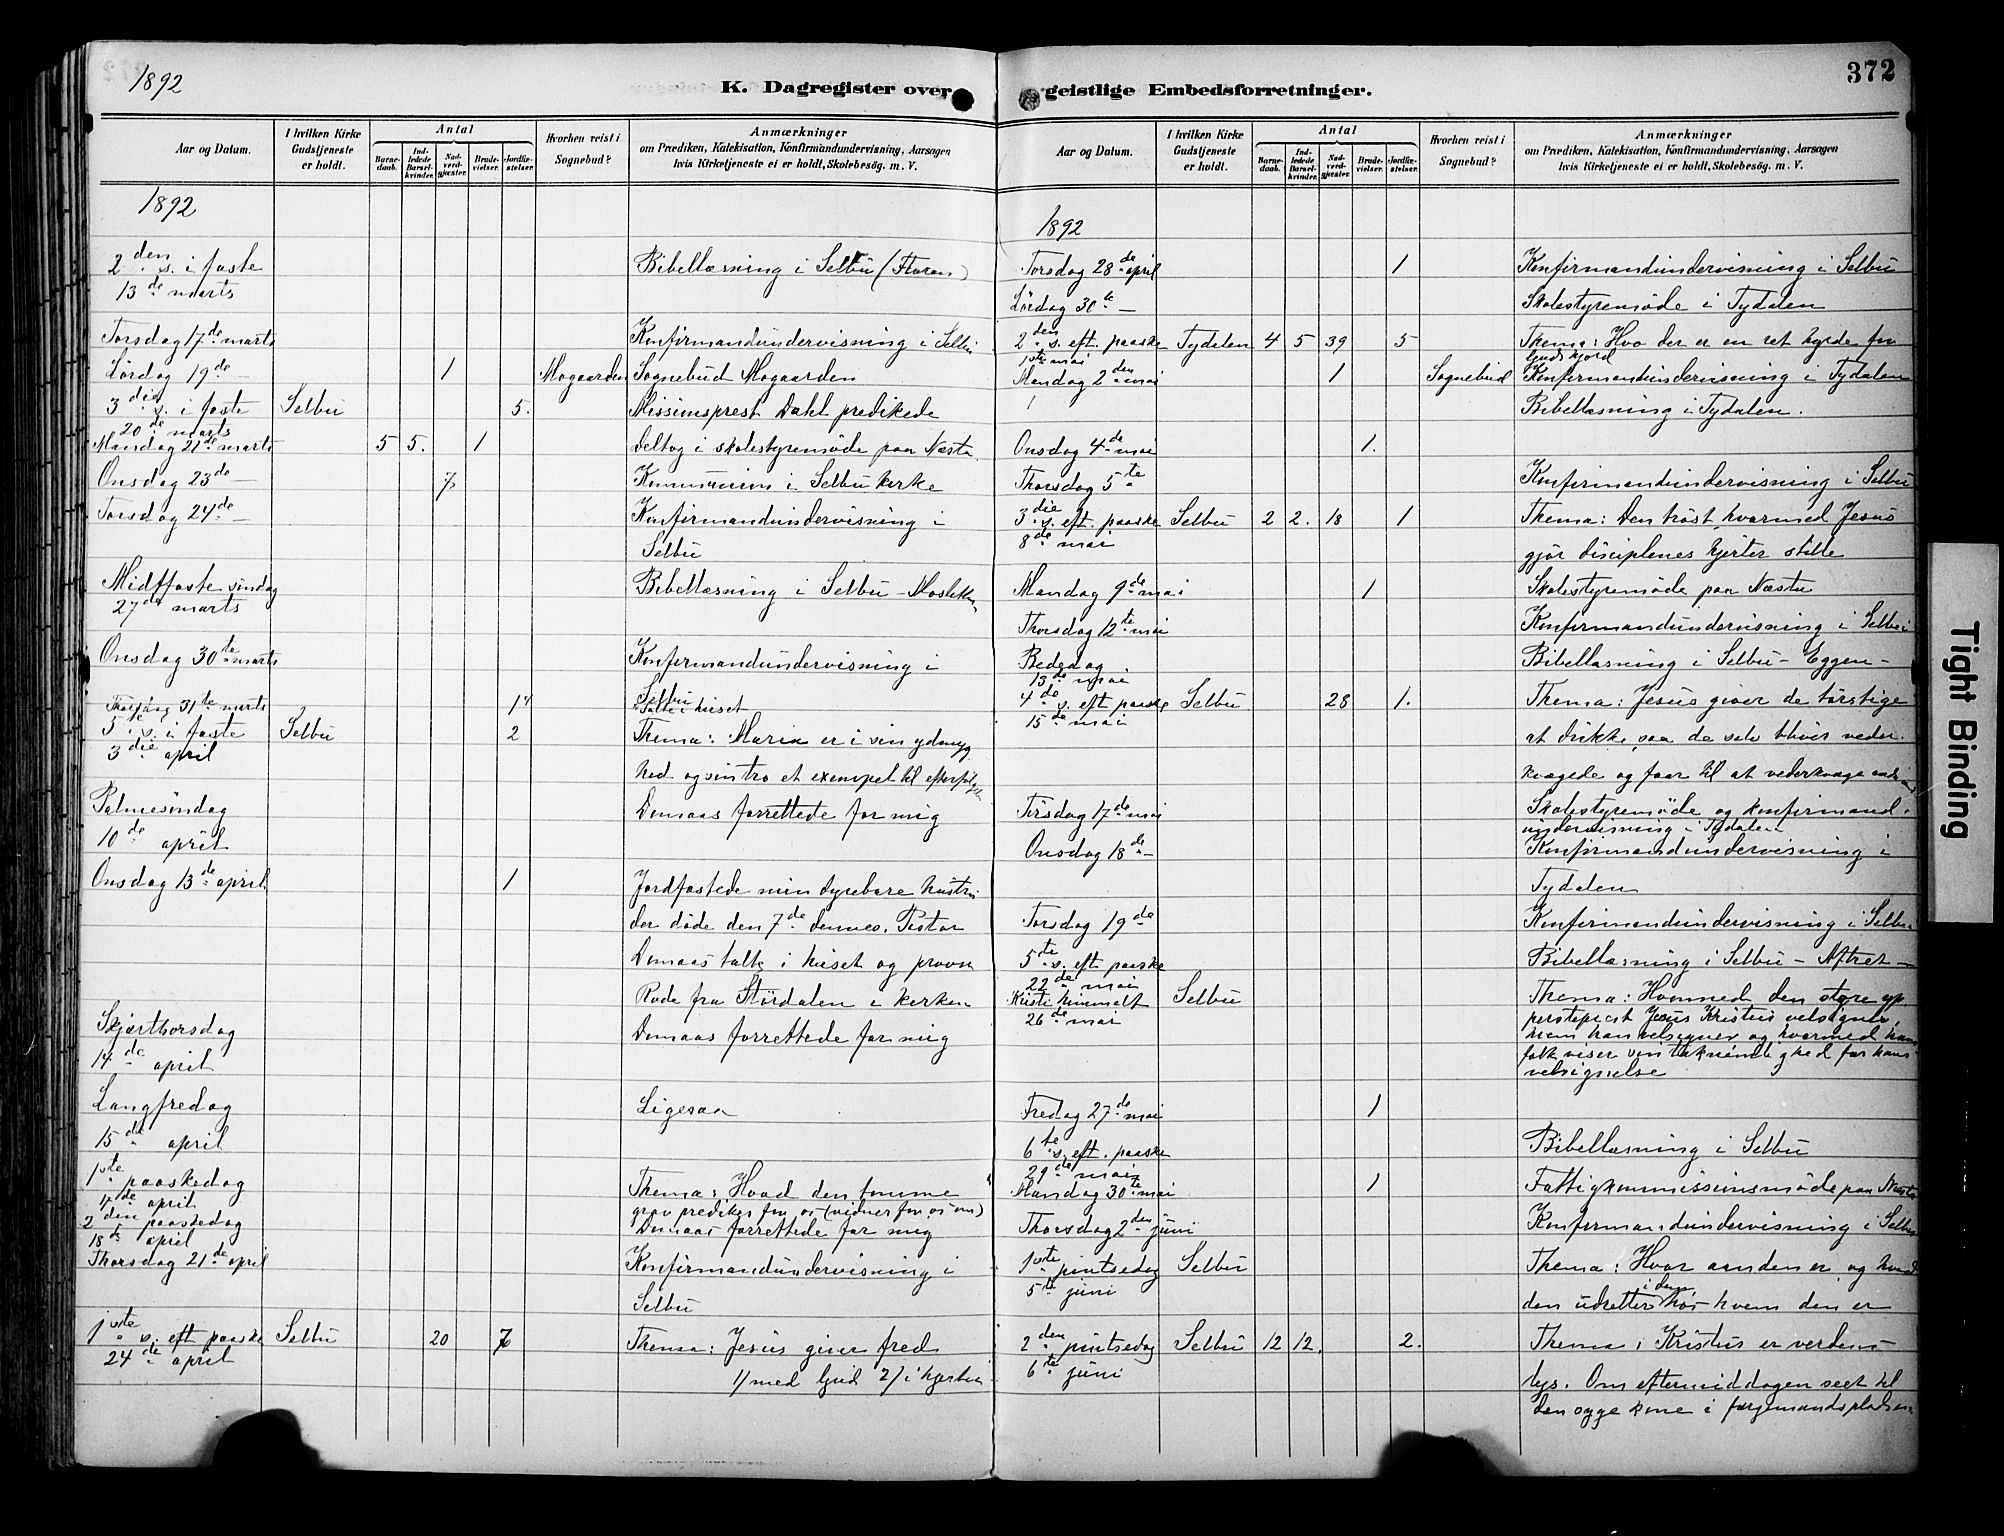 1892
K. Dagregister over
Aar og Datum.
I hvilken Kirke Gudstjeneste er holdt.
Antal
Barnedaab.
Indledede Barselkvinder.
Nadverdgjæster.
Brudevielser.
Jordfæstelser.
Hvorhen reist i Sognebud?
Anmærkninger
om Prædiken, Katekisation, Konfirmandundervisning, Aarsagen
hvis Kirketjeneste ei er holdt, Skolebesög. m. V.
1892
2den s. i faste Bibellæsning i Selbu (Floren)
13de marts
Torsdag 17de marts Konfirmandundervisning i Selbu
Lördag 19de — 1 Mogaarden Sognebud Mogaarden
3die s. i faste Selbu 5. Missionsprest Dahl predikede
20de marts
Mandag 21de marts 5 5. 1 Deltog i skolestyremöde paa Næsta
Onsdag 23de — 7 Kommunion i Selbu kirke
Torsdag 24de — Konfirmandundervisning i
Selbu
Midtfaste söndag Bibellæsning i Selbu -
27de marts
Onsdag 30te marts Konfirmandundervisning i
Selbu
Thorsdag 31te marts 1 Talte i huset
5te s. i faste Selbu 2 Thema: Maria er i sin ydmyg
3die april
hed og sin tro et exempel til efterfölgelse
Palmesöndag Domaas forrettede for mig
10de april
Onsdag 13de april 1 Jordfæstede min dyrebare hustru
der döde den 7de dennes. Pastor
Domaas talte i huset og provst
Rode fra Stördalen i kirken
Skjærthorsdag Domaas forrettede for mig
14de april
Langfredag Ligesaa
15de april
1ste paaskedag Thema: Hvad den tomme
de april grav prediker for os (vidner for os om)
2den paaskedag Domaas forrettede for mig
18de april
Thorsdag 21de april Konfirmandundervisning i
Selbu
1ste s. eft paaske Selbu 20 7 Thema: Jesus giver fred
24de april 1/ med Gud 2/ i hjertet
372
geistlige Embedsforretninger.
Aar og Datum.
I hvilken Kirke Gudstjeneste er holdt.
Antal
Barnedaab.
Indledede Barselkvinder.
Nadverdgjæster.
Brudevielser.
Jordfæstelser.
Hvorhen reist i Sognebud?
Anmærkninger
om Prædiken, Katekisation, Konfirmandundervisning, Aarsagen
hvis Kirketjeneste ei er holdt, Skolebesög. m. V.
1892
Torsdag 28de april 1 Konfirmandundervisning i Selbu
Lördag 30te — Skolestyremöde i Tydalen
2den s. eft. paaske Tydalen 4 5 39 5 Thema: Hvo der er en ret hyrde for
1ste mai Guds hjord
Mandag 2den mai 1 Sognebud Konfirmandundervisning i Tydalen
Bibellæsning i Tydalen.
Onsdag 4de mai 1.
Thorsdag 5te Konfirmandundervisning i Selbu
3die s. eft. paaske Selbu 2 2. 18 1 Thema: Den tröst, hvormed Jesus
8de mai gjör disciplenes hjerter stille
Mandag 9de mai 1 Skolestyremöde paa Næsta
Thorsdag 12te mai Konfirmandundervisning i Selbu
Bededag Bibellæsning i Selbu - Eggen -
13de mai
4de s. eft paaske Selbu 28 1. Thema: Jesus giver de törstige
15de mai at drikke, saa de selv bliver veder-
kvægede og faar til at vederkvæge andre
Tirsdag 17de mai Skolestyremöde og konfirmand-
undervisning i Tydalen
Onsdag 18de — Konfirmandundervisning i
Tydalen
Torsdag 19de Konfirmandundervisning i Selbu
5te s. eft paaske Bibellæsning i Selbu - Aftret -
22de mai
Kristi himmelf Selbu Thema: Hvormed den store yp-
26de mai perstepræst Jesus Kristus velsigner,
hvem han velsigner og hvormed hans
folk viser sin taknemlighed for hans
velsignelse
Fredag 27de mai 1
6te s. eft. paaske Bibellæsning i Selbu
29de mai
Mandag 30te mai 1 Fattigkommissionsmöde paa Næsta
Thorsdag 2den juni Konfirmandundervisning i Selbu
1ste pintsedag Selbu Thema: Hvor aanden er, og hvad
5te juni den udretter i dem hos hvem den er
2den pintsedag Selbu 12 12. 2. Thema: Kristus er verdens
6te juni lys. Om eftermiddagen reist til
den syge kone i færgemandspladsen
Tight Binding